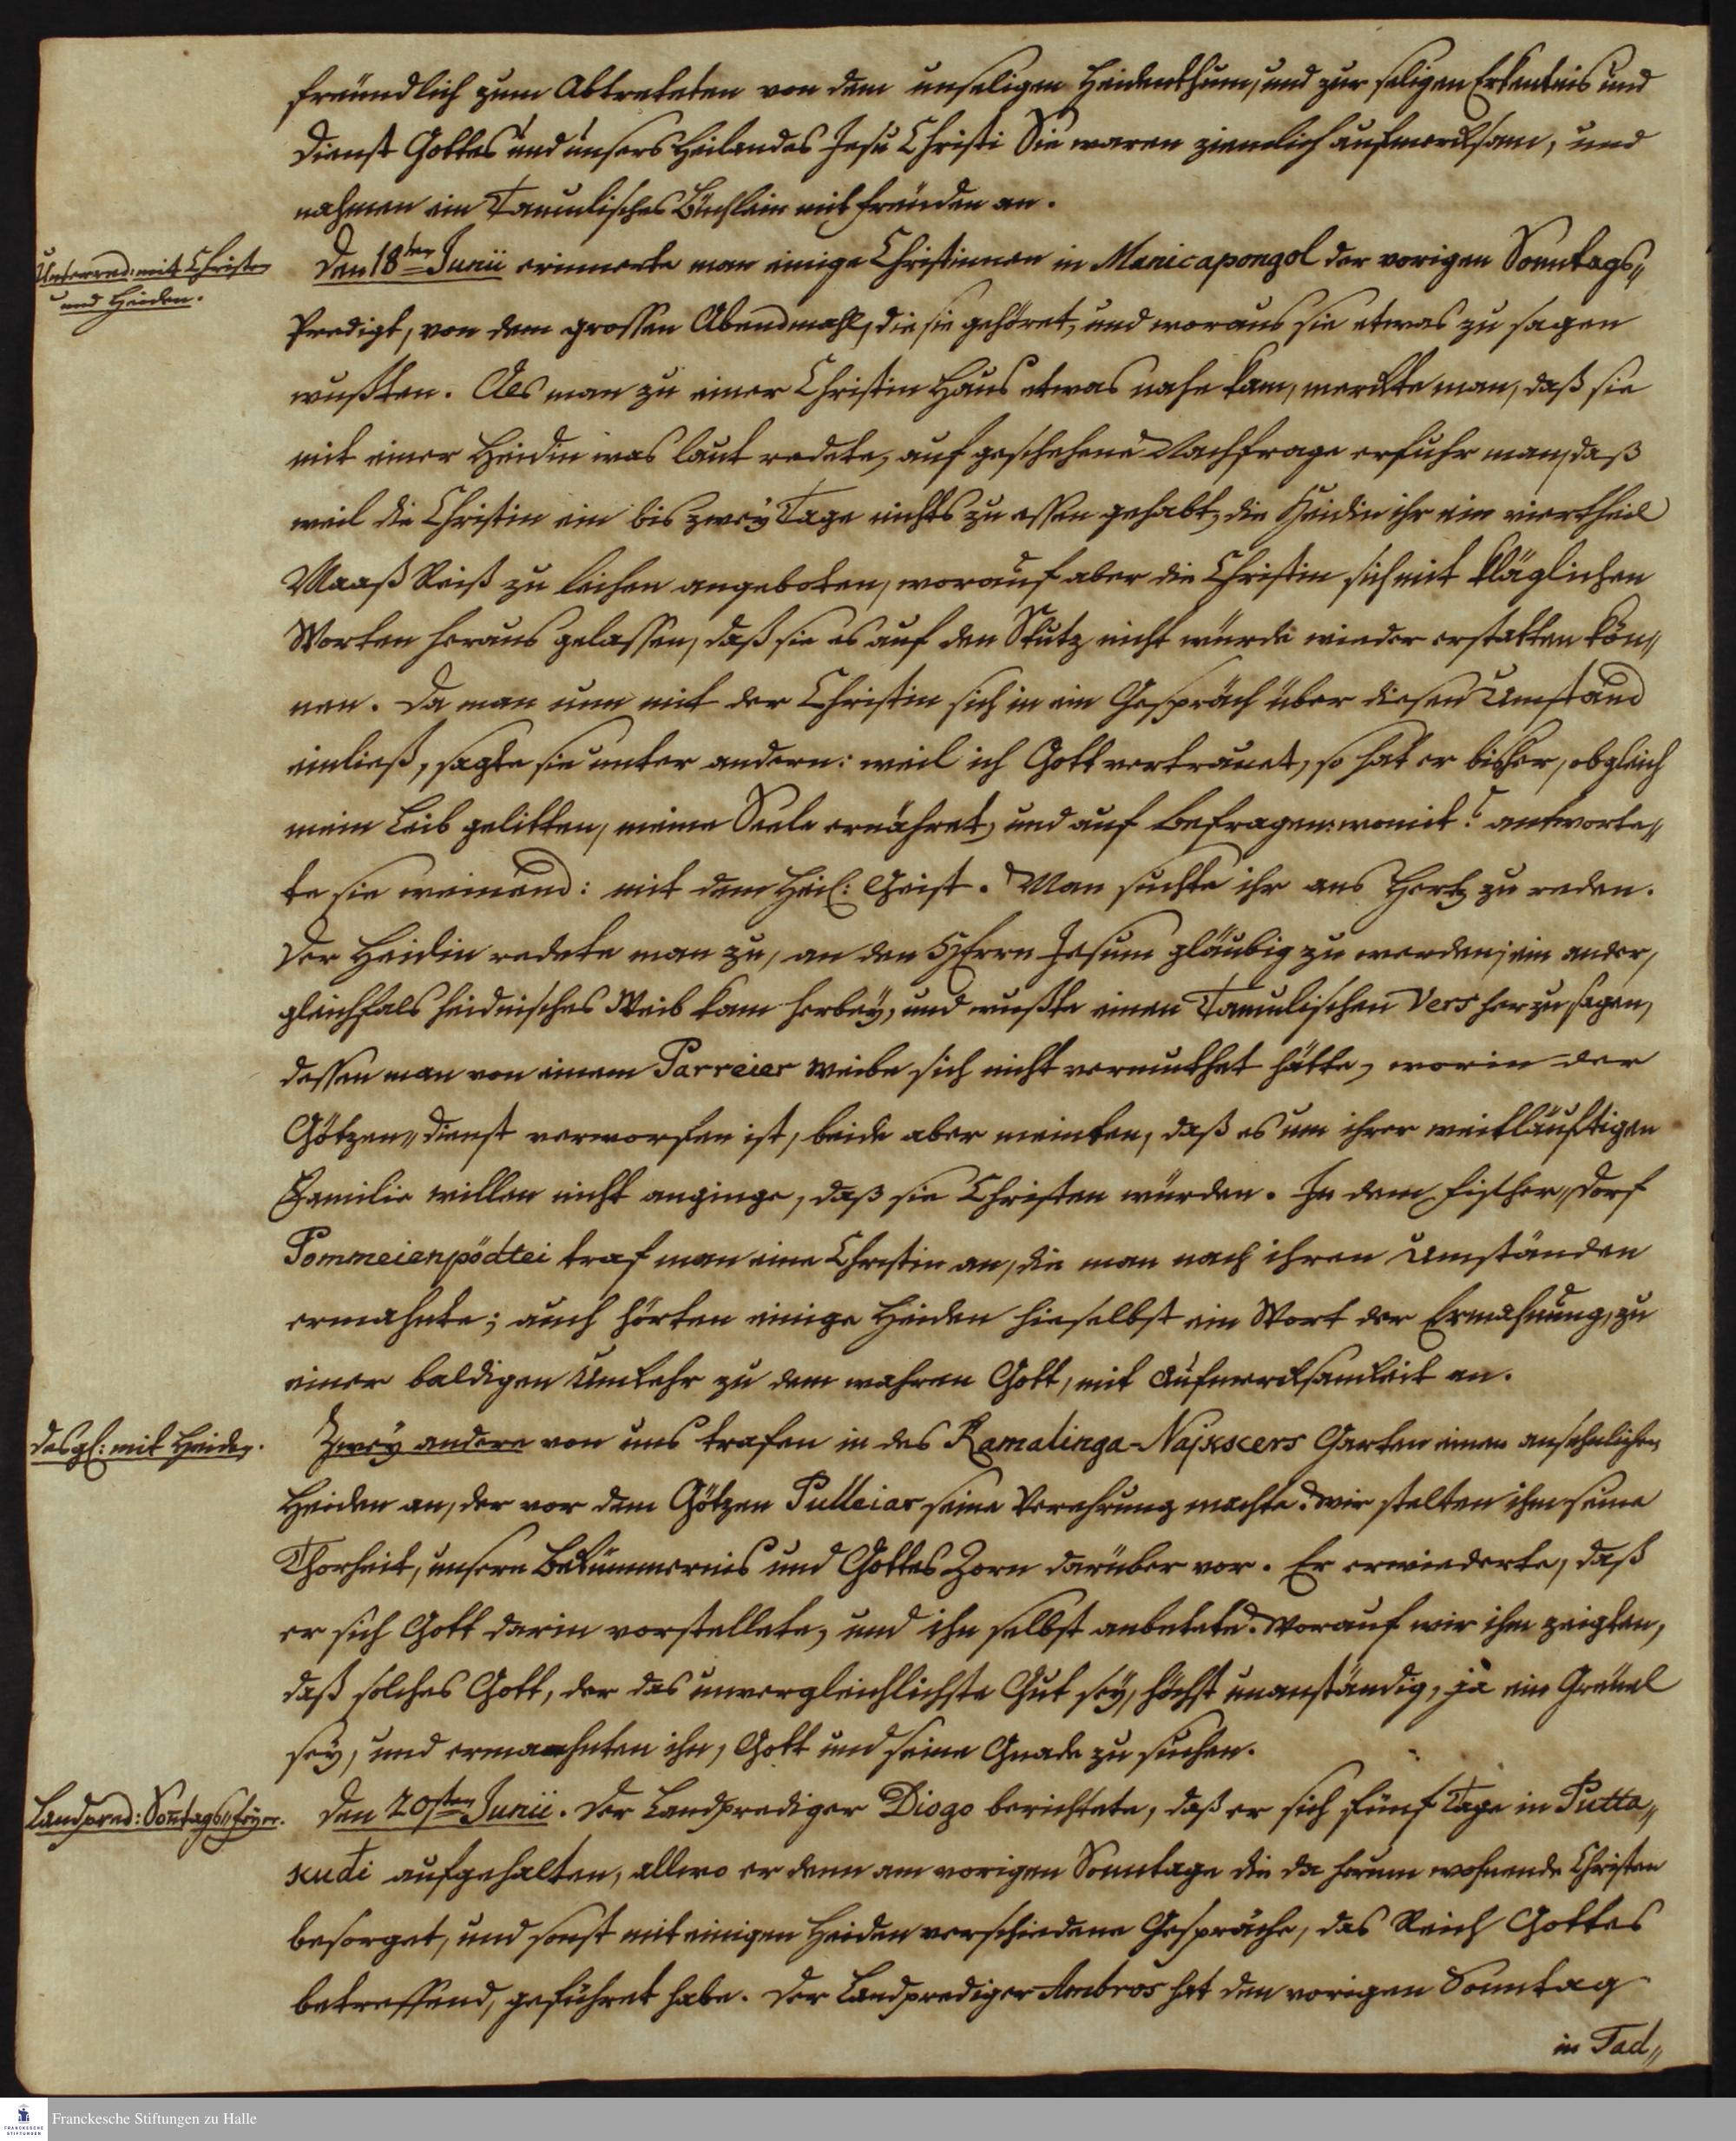 freündlich zum Abtreteten von dem unseligen Heidenthum, und zur seligen Erkentnis und
Dienst Gottes und unsers Heilandes Jesu Christi Sie waren ziemlich aufmercksam, und
nahmen ein Tamulisches Büchlein mit freüden an.
Unterred: mit Christen
und Heiden.
Den 18ten Junii erinnerte man einige Christinnen in Manicapongol der vorigen Sonntags„
Predigt, von dem grossen Abendmahl, die sie gehöret, und woraus sie etwas zu sagen
wußten. Als man zu einer Christin Haus etwas nahe kam, merckte man, daß sie
mit einer Heidin was laut redete, auf geschehene Nachfrage erfuhr man, daß
weil die Christin ein bis zwey Tage nichts zu essen gehabt, die Heidin ihr ein viertheil
Maaß Reiß zu leihen angeboten, worauf aber die Christin sich mit kläglichen
Worten heraus gelassen, daß sie es auf den Stutz nicht würde wieder erstatten kön„
nen. Da man nun mit der Christin sich in ein Gespräch über diesen Umstand
einließ, sagte sie unter andern: weil ich Gott vertrauet, so hat er bisher, obgleich
mein Leib gelitten, meine Seele ernähret, und auf Befragen: womit? antworte„
te sie weinend: mit dem Heil: Geist. Man suchte ihr ans Hertz zu reden.
Der Heidin redete man zu, an den HErrn Jesum gläubig zu werden; ein ander,
gleichfals heidnisches Weib kam herbey, und wußte einen Tamulischen Vers herzusagen,
dessen man von einem Parreier Weibe sich nicht vermuthet hätte, worin der
Götzen„dienst verworfen ist, beide aber meinten, daß es um ihrer weitläuftigen
Familie willen nicht anginge, daß sie Christen würden. In dem Fischer„dorf
Pommeienpödtei traf man eine Christin an, die man nach ihren Umständen
ermahnte; auch hörten einige Heiden hieselbst ein Wort der Ermahnung, zu
einer baldigen Umkehr zu dem wahren Gott, mit Aufmercksamkeit an.
desgl: mit Heiden.
Zwey andere von uns trafen in des Ramalinga-Najkscers Garten einen ansehnlichen
Heiden an, der vor dem Götzen Pulleiar seine Verehrung machte. Wir stelten ihm seine
Thorheit, unsere Bekümmernis und Gottes Zorn darüber vor. Er erwiederte, daß
er sich Gott darin vorstellete, und ihn selbst anbetete. Worauf wir ihm zeigten,
daß solches Gott, der das unvergleichlichste Gut sey, höchst unanständig, ja ein Greüel
sey, und ermahnten ihn, Gott und seine Gnade zu suchen.
Landpred: Sontags„feyer.
Den 20sten Junii. Der Landprediger Diogo berichtete, daß er sich fünf Tage in Putta„
kudi aufgehalten, allwo er denn am vorigen Sonntage die da herum wohnende Christen
besorget, und sonst mit einigen Heiden verschiedene Gespräche, das Reich Gottes
betreffend, geführet habe. Der Landprediger Ambros hat den vorigen Sonntag
in Tad„
Franckesche Stiftungen zu Halle
FRANCKESCHE
STIFTUNGEN